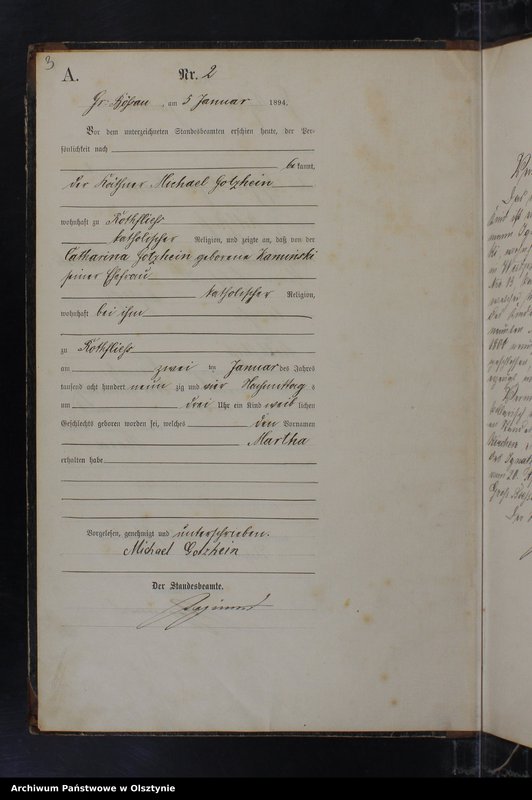 3
A.
Nr. 2
Gr. Bößau, am 5 Januar 1894,
Vor dem unterzeichneten Standesbeamten erschien heute, der Per-
sönlichkeit nach
bekannt,
der Käthner Michael Gotzhein
wohnhaft zu Rothfließ
katholischer Religion, und zeigte an, daß von der
Catharina Gotzhein geborene Kaminski
seiner Ehefrau
katholischer Religion,
wohnhaft bei ihm
zu Rothfließ
am zwei ten Januar des Jahres
tausend acht hundert neun zig und vier Nachmittag s
um drei Uhr ein Kind weib lichen
Geschlechts geboren worden sei, welches den Vornamen
Martha
erhalten habe
Vorgelesen, genehmigt und unterschrieben.
Michael Gotzhein
Der Standesbeamte.
Archiwum Państwowe w Olsztynie